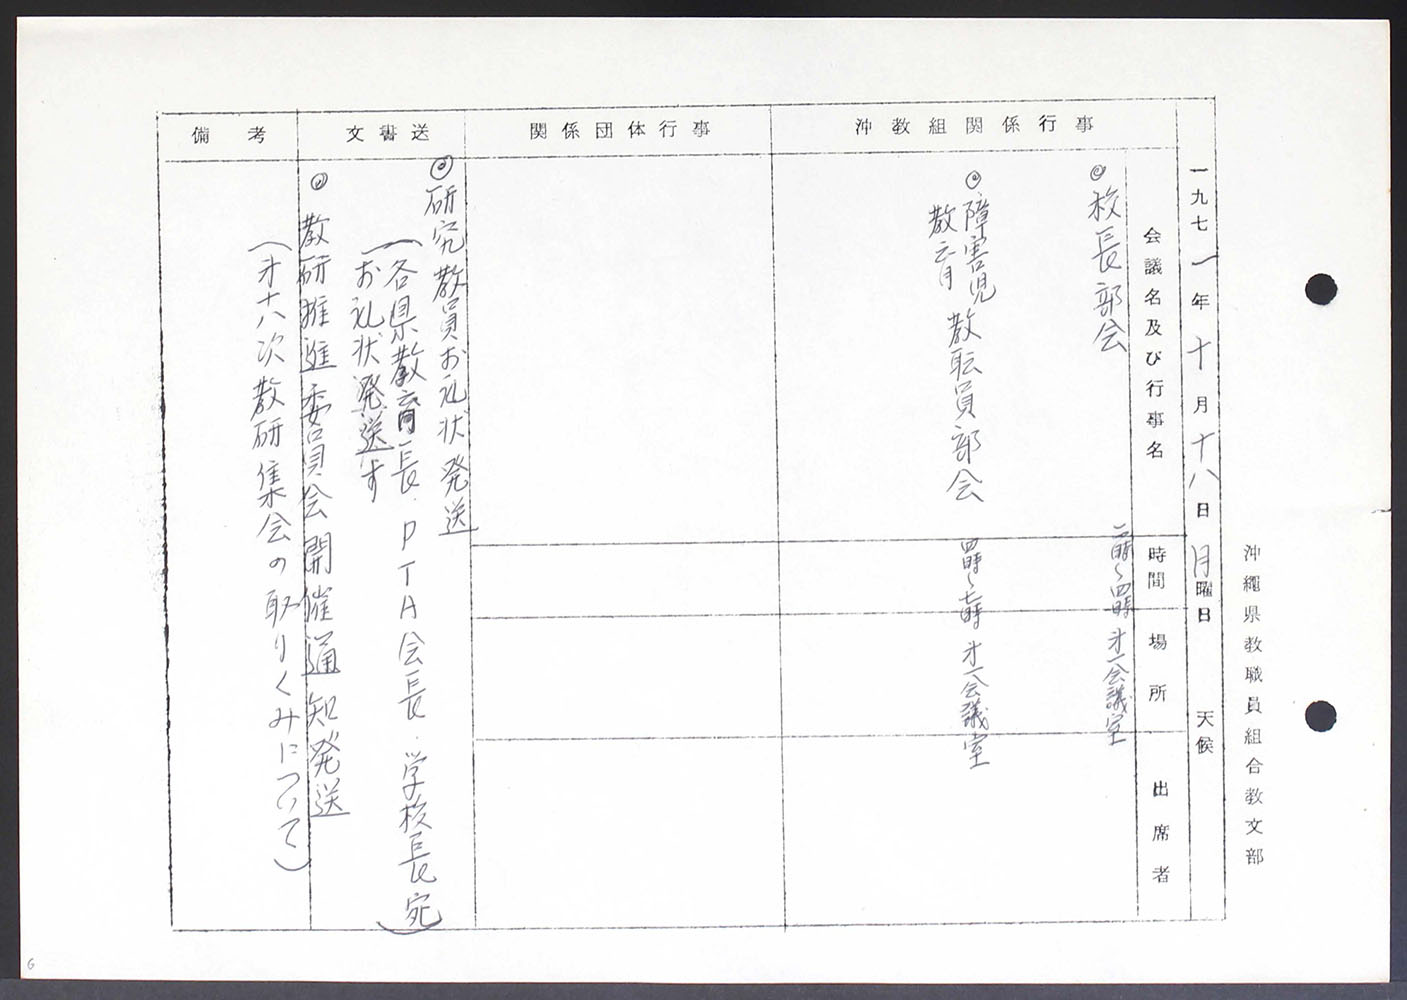 沖縄県教職員組合教文部
一九七一年十月十八日月曜日 天候
会議名及び行事名 時間 場所 出席者
沖教組関係行事
◎校長部会 二時〜四時 才一会議室
◎障害児教育教職員部会 四時〜七時 才一会議室
関係団体行事
文書送
◎研究教員お礼状発送
(各県教育長・PTA会長・学校長宛)
お礼状発送す
◎教研推進委員会開催通知発送
(才十八次教研集会の取りくみについて)
備考
6